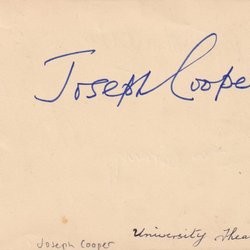 Joseph Coope
Joseph Cooper
University Thea